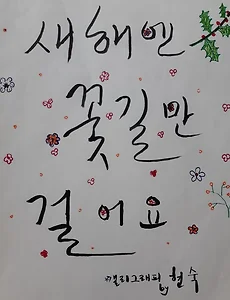 새해엔
꽃길만
걸어요
캘리그래피 by 현숙